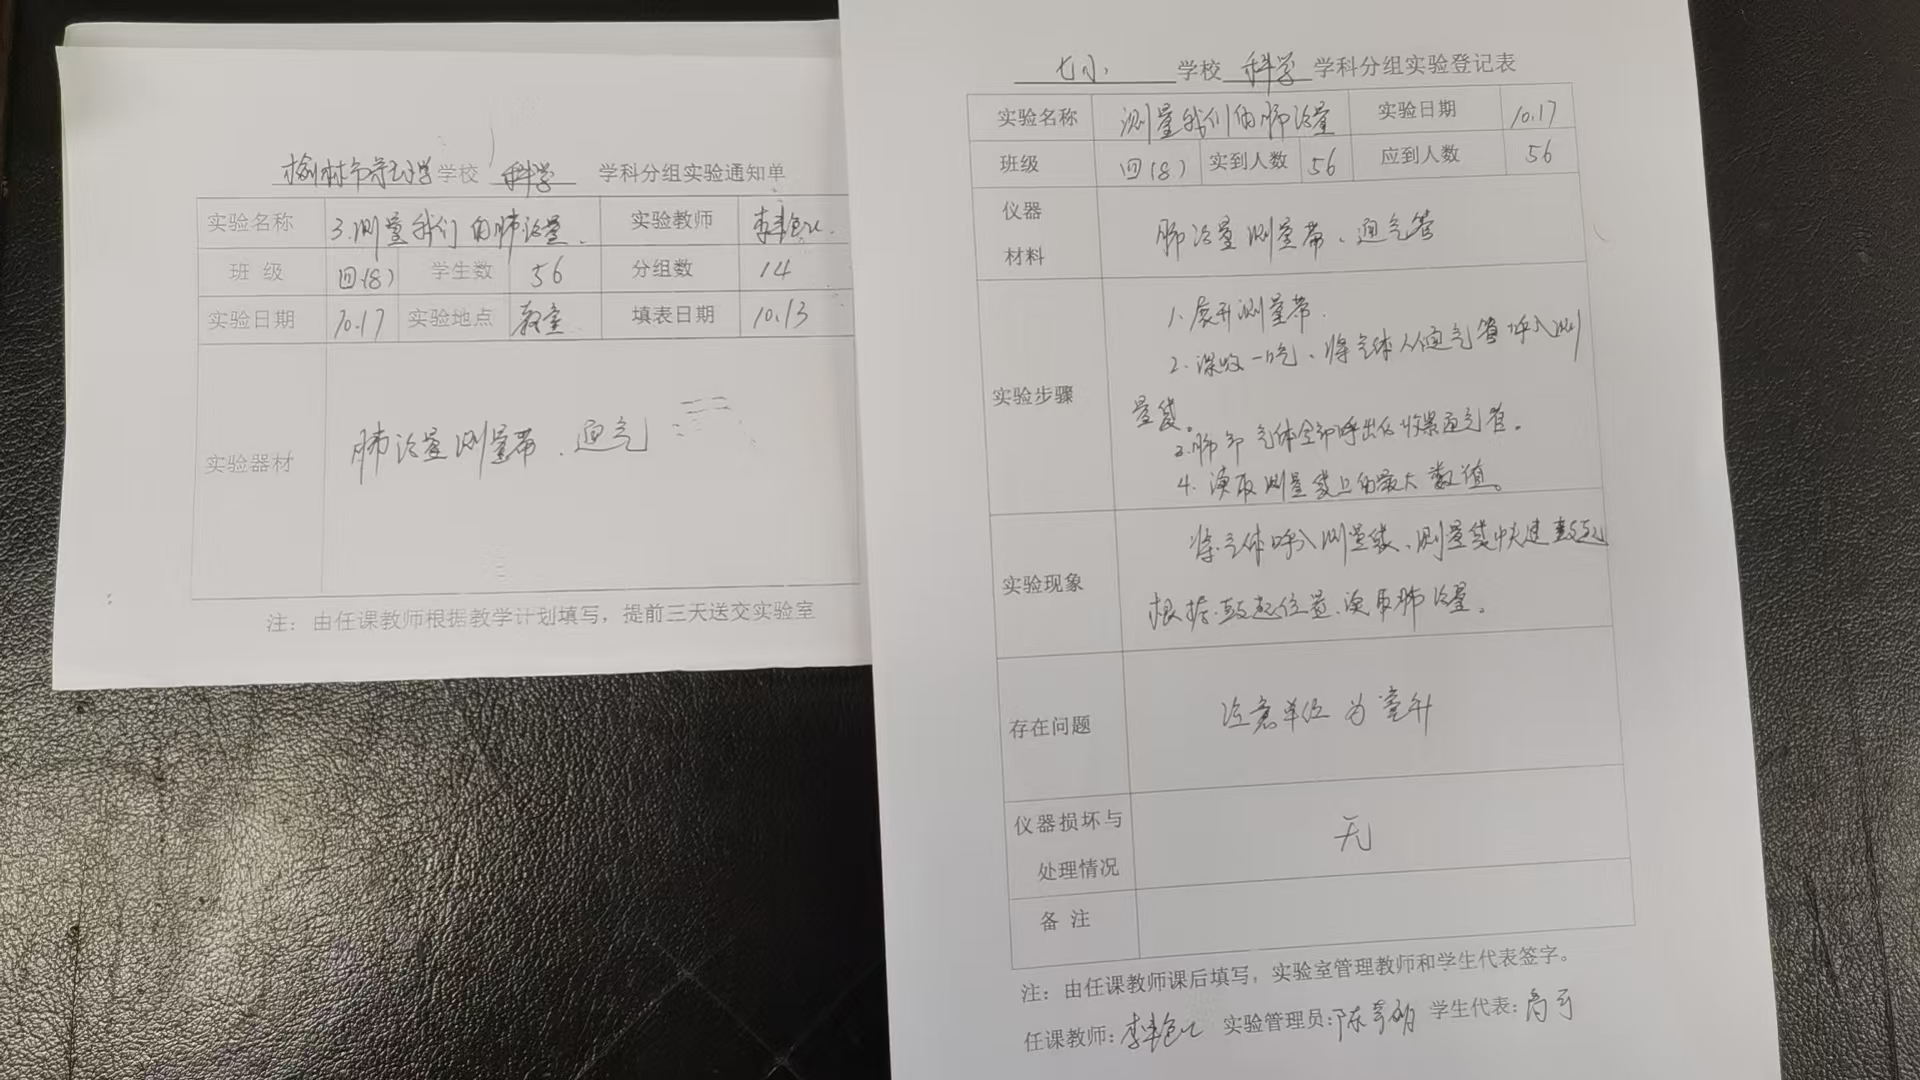 榆林市第七小学学校 科学 学科分组实验通知单
实验名称 3.测量我们的肺活量. 实验教师
班 级 四(8) 学生数 56 分组数 14
实验日期 10.17 实验地点 教室 填表日期 10.13
实验器材 肺活量测量带、通气
注：由任课教师根据教学计划填写，提前三天送交实验室
七小 学校 科学 学科分组实验登记表
实验名称 测量我们的肺活量 实验日期 10.17
班级 四(8) 实到人数 56 应到人数 56
仪器
材料
肺活量测量带、通气管
实验步骤
1.展开测量带.
2.深吸一口气、将气体从通气管呼入测
量袋。
3.肺部气体全部呼出后收紧通气管.
4.读取测量袋上的最大数值。
实验现象
将气体呼入测量袋、测量袋快速鼓起
根据鼓起位置、读取肺活量.
存在问题 注意单位为毫升
仪器损坏与
处理情况
无
备 注
注：由任课教师课后填写，实验室管理教师和学生代表签字。
任课教师： 实验管理员： 学生代表：